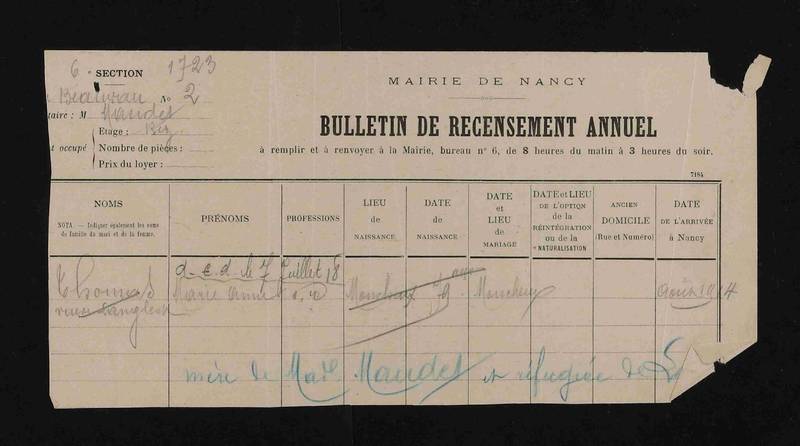 6e SECTION 1723
MAIRIE DE NANCY
Beauvau No 2
taire : M Maudet
BULLETIN DE RECENSEMENT ANNUEL
Etage : Rez
t occupé Nombre de pièces :
à remplir et à renvoyer à la Mairie, bureau n° 6, de 8 heures du matin à 3 heures du soir.
Prix du loyer :
7184
NOMS
NOTA. — Indiquer également les noms de famille du mari et de la femme.
PRÉNOMS
PROFESSIONS
LIEU de NAISSANCE
DATE de NAISSANCE
DATE et LIEU de MARIAGE
DATE et LIEU DE L'OPTION de la RÉINTÉGRATION ou de la NATURALISATION
ANCIEN DOMICILE (Rue et Numéro)
DATE DE L'ARRIVÉE à Nancy
d-c-d le 7 Juillet 18
Thomas Marie Anne Moncheux 79 ans Moncheux Août 1914
veuve
mère de Mad. Maudet et réfugiée de